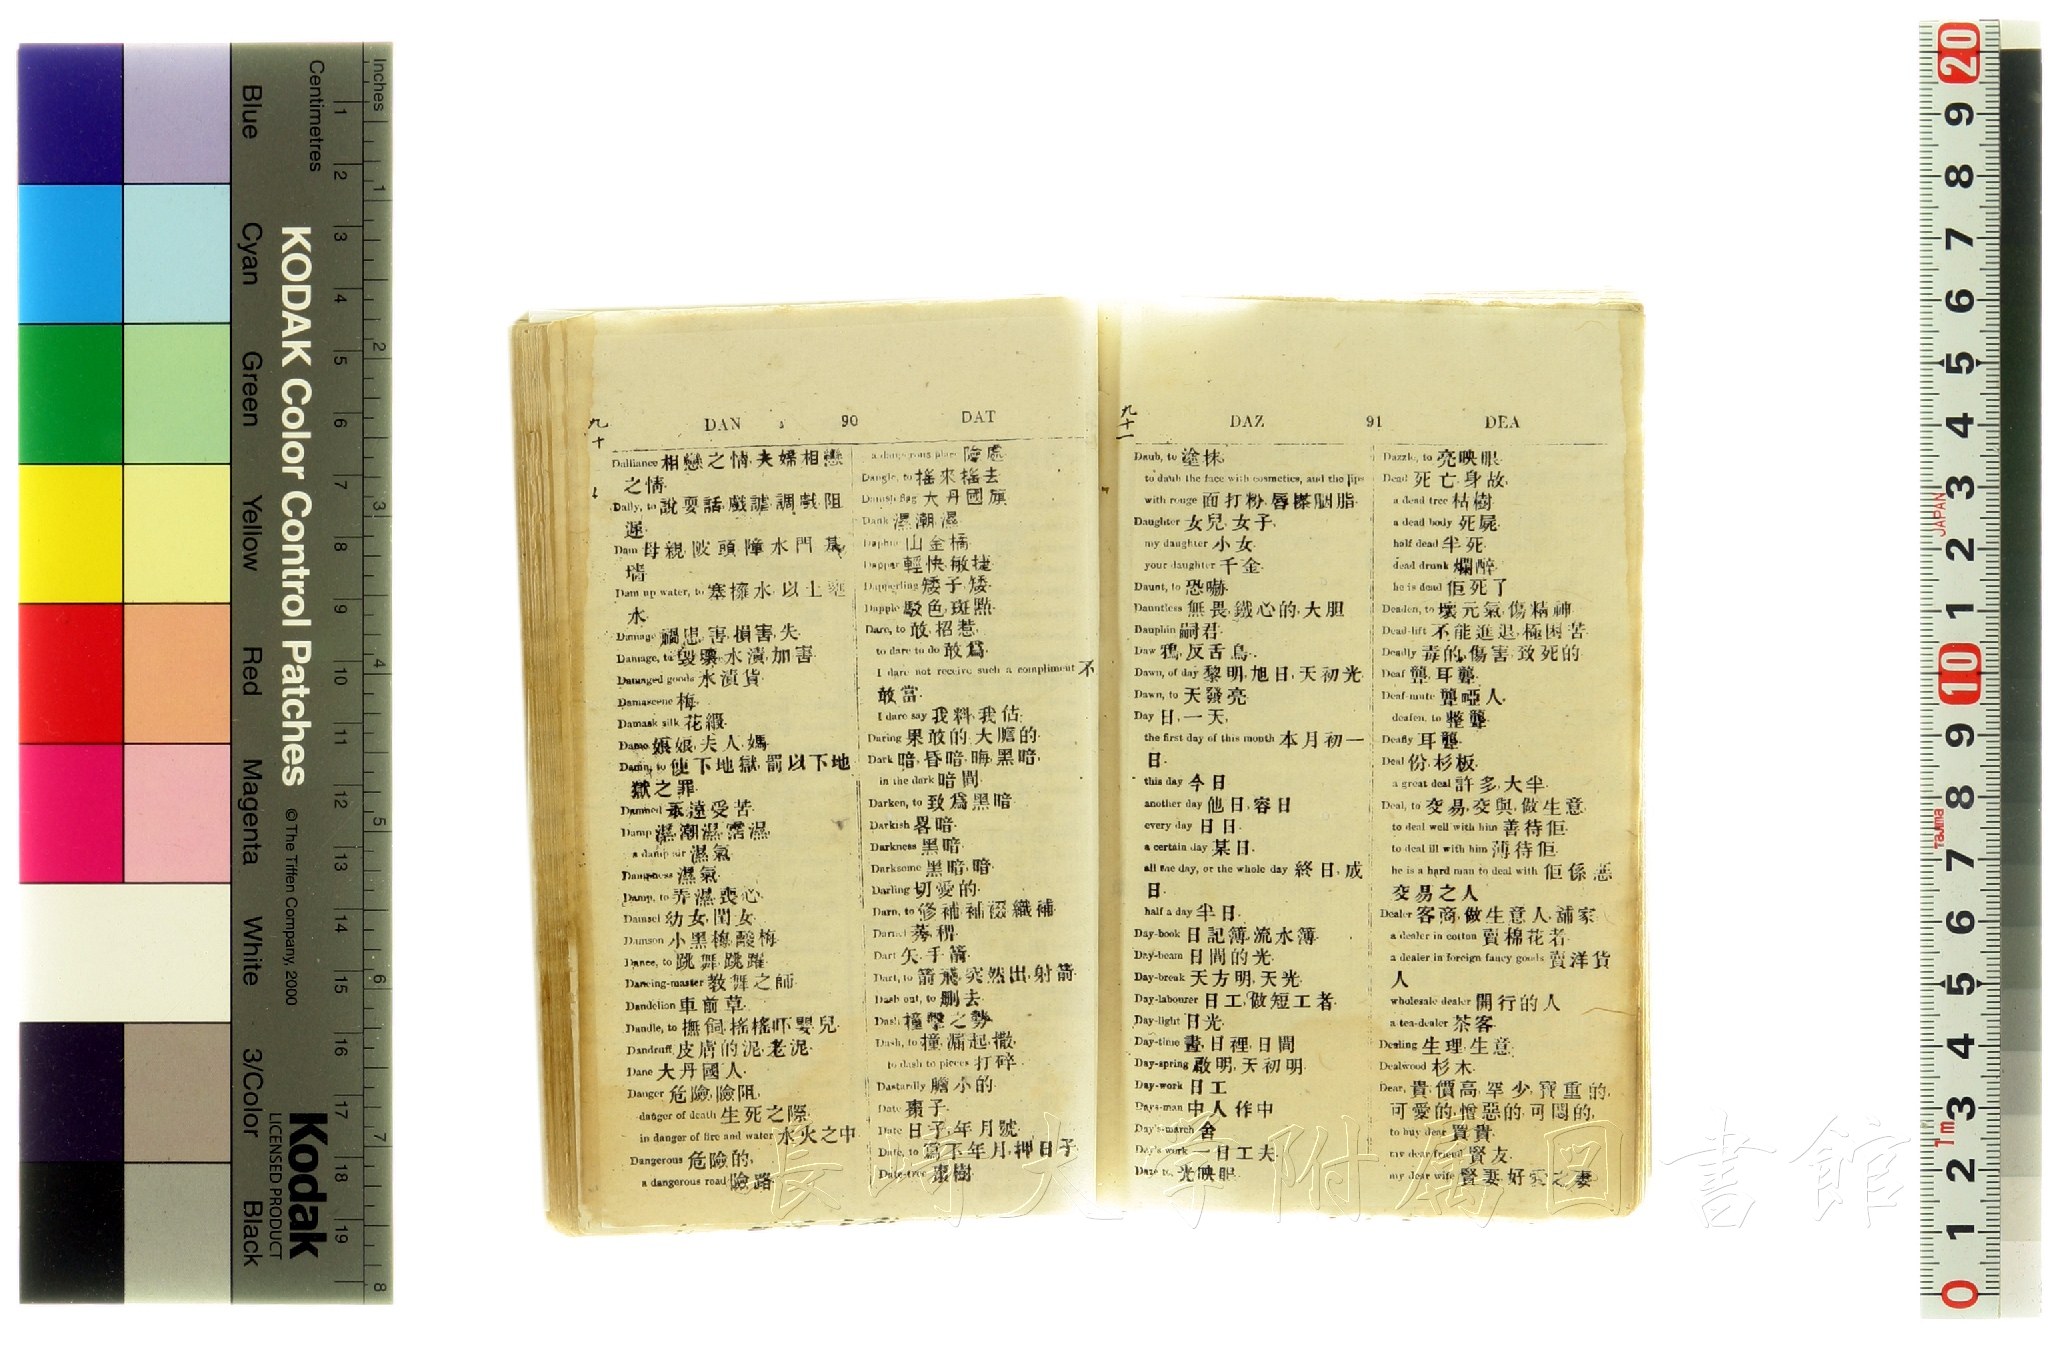 Inches
Centimetres
Blue
Cyan
Green
Yellow
Red
Magenta
White
3/Color
Black
KODAK Color Control Patches
© The Tiffen Company, 2000
Kodak
LICENSED PRODUCT
九十
DAN 90 DAT
Dalliance 相戀之情, 夫婦相戀
之情
Dally, to 說耍話, 戲謔, 調戲, 阻
遲
Dam 母親, 陂頭, 障水門, 基
墻
Dam up water, to 塞擁水, 以土
水
Damage 禍患, 害, 損害, 失
Damage, to 毀壞, 水漬, 加害
Damaged goods 水漬貨
Damascene 梅
Damask silk 花緞
Dame 娘, 夫人, 媽
Damn, to 使下地獄, 罰以下地
獄之罪
Damned 永遠受苦
Damp 濕, 潮濕, 濕
a damp air 濕氣
Dampness 濕氣
Damp, to 弄濕, 喪心
Damsel 幼女, 閨女
Damson 小黑梅, 酸梅
Dance, to 跳舞, 跳躍
Dancing-master 教舞之師
Dandelion 車前草
Dandle, to 撫, 搖搖吓嬰兒
Dandruff 皮膚的泥, 老泥
Dane 大丹國人
Danger 危險, 險阻
danger of death 生死之際
in danger of fire and water 水火之中
Dangerous 危險的,
a dangerous road 險路
a dangerous place 險處
Dangle, to 搖來搖去
Danish flag 大丹國旗
Dank 濕, 潮濕
Daphne 山金橘
Dapper 輕快, 敏捷
Dapperling 矮子, 矮
Dapple 駁色, 斑點
Dare, to 敢, 招惹
to dare to do 敢爲
I dare not receive such a compliment 不
敢當
I dare say 我料, 我估
Daring 果敢的, 大膽的
Dark 暗, 昏暗, 晦, 黑暗,
in the dark 暗間
Darken, to 致爲黑暗
Darkish 畧暗
Darkness 黑暗
Darksome 黑暗, 暗
Darling 切愛的
Darn, to 修補, 補綴, 織補
Darnel 莠稗
Dart 矢, 手箭
Dart, to 箭飛, 突然出, 射箭
Dash out, to 刪去
Dash 撞擊之勢
Dash, to 撞, 漏起, 撒
to dash to pieces 打碎
Dastardly 膽小的
Date 棗子
Date 日子, 年月號
Date, to 寫下年月, 押日子
Date-tree 棗樹
九十一
DAZ 91 DEA
Daub, to 塗抹
to daub the face with cosmetics, and the lips
with rouge 面打粉, 唇搽胭脂
Daughter 女兒, 女子,
my daughter 小女
your daughter 千金
Daunt, to 恐嚇
Dauntless 無畏, 鐵心的, 大胆
Dauphin 嗣君
Daw 鴉, 反舌鳥
Dawn, of day 黎明, 旭日, 天初光
Dawn, to 天發亮
Day 日, 一天,
the first day of this month 本月初一
日
this day 今日
another day 他日, 容日
every day 日日
a certain day 某日
all the day, or the whole day 終日, 成
日
half a day 半日
Day-book 日記簿, 流水簿
Day-beam 日間的光
Day-break 天方明, 天光
Day-labourer 日工, 做短工者
Day-light 日光
Day-time 晝, 日裡, 日間
Day-spring 啟明, 天初明
Day-work 日工
Days-man 中人, 作中
Day's-march 舍
Day's work 一日工夫
Daze to, 光映眼
Dazzle, to 亮映眼
Dead 死亡, 身故,
a dead tree 枯樹
a dead body 死屍
half dead 半死
dead drunk 爛醉
he is dead 佢死了
Deaden, to 壞元氣, 傷精神
Dead-lift 不能進退, 極困苦
Deadly 毒的, 傷害, 致死的
Deaf 聾, 耳聾
Deaf-mute 聾啞人
deafen, to 整聾
Deafly 耳聾
Deal 份, 杉板
a great deal 許多, 大半
Deal, to 交易, 交與, 做生意
to deal well with him 善待佢
to deal ill with him 薄待佢
he is a hard man to deal with 佢係惡
交易之人
Dealer 客商, 做生意人, 舖家
a dealer in cotton 賣棉花者
a dealer in foreign fancy goods 賣洋貨
人
wholesale dealer 開行的人
a tea-dealer 茶客
Dealing 生理, 生意
Dealwood 杉木
Dear, 貴, 價高, 罕少, 寶重的,
可愛的, 憎惡的, 可悶的,
to buy dear 買貴
my dear friend 賢友
my dear wife 賢妻, 好愛之妻
長崎大学附属図書館
JAPAN
Tajima
1m